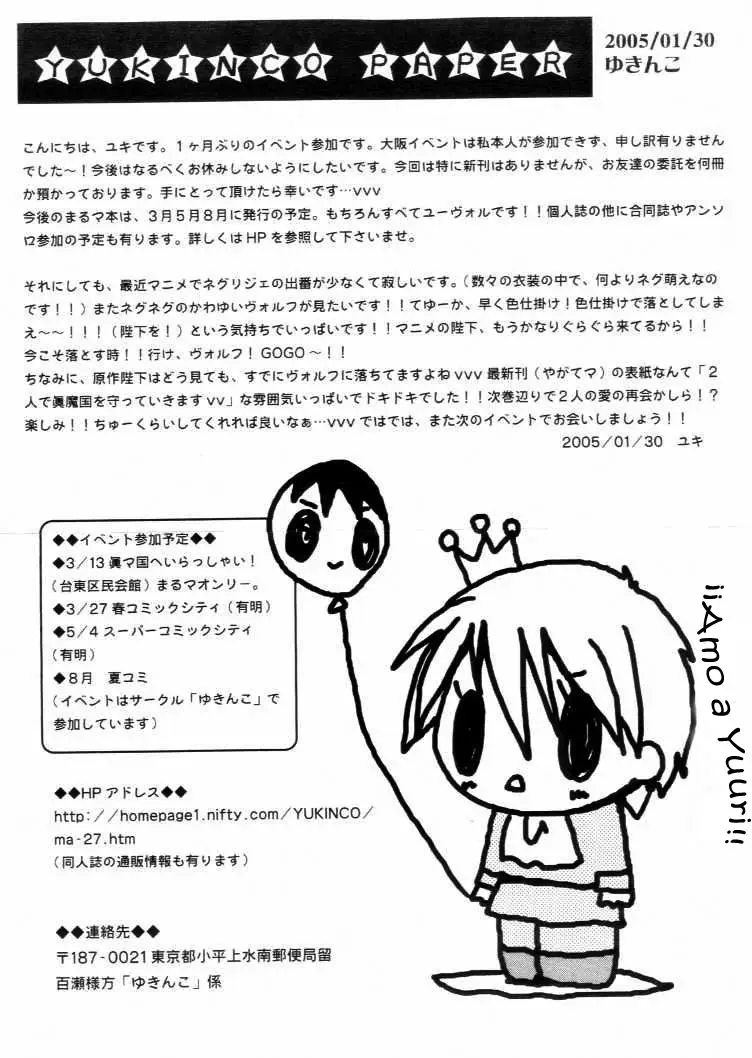 YUKINCO PAPER
2005/01/30
ゆきんこ
こんにちは、ユキです。１ヶ月ぶりのイベント参加です。大阪イベントは私本人が参加できず、申し訳有りません
でした～！今後はなるべくお休みしないようにしたいです。今回は特に新刊はありませんが、お友達の委託を何冊
か預かっております。手にとって頂けたら幸いです…vvv
今後のまるマ本は、３月５月８月に発行の予定。もちろんすべてユーヴォルです！！個人誌の他に合同誌やアンソ
ロ参加の予定も有ります。詳しくはHPを参照して下さいませ。
それにしても、最近マニメでネグリジェの出番が少なくて寂しいです。（数々の衣装の中で、何よりネグ萌えなの
です！！）またネグネグのかわゆいヴォルフが見たいです！！てゆーか、早く色仕掛け！色仕掛けで落としてしま
え～～！！！（陛下を！）という気持ちでいっぱいです！！マニメの陛下、もうかなりぐらぐら来てるから！！
今こそ落とす時！！行け、ヴォルフ！GOGO～！！
ちなみに、原作陛下はどう見ても、すでにヴォルフに落ちてますよねvvv 最新刊（やがてマ）の表紙なんて「２
人で眞魔国を守っていきますvv」な雰囲気いっぱいでドキドキでした！！次巻辺りで２人の愛の再会かしら！？
楽しみ！！ちゅーくらいしてくれれば良いなぁ…vvv ではでは、また次のイベントでお会いしましょう！！
2005/01/30　ユキ
◆◆イベント参加予定◆◆
◆3/13 眞マ国へいらっしゃい！
（台東区民会館）まるマオンリー。
◆3/27 春コミックシティ（有明）
◆5/4 スーパーコミックシティ
（有明）
◆８月　夏コミ
（イベントはサークル「ゆきんこ」で
参加しています）
¡¡Amo a Yuuri!!
◆◆HPアドレス◆◆
http://homepage1.nifty.com/YUKINCO/
ma-27.htm
（同人誌の通販情報も有ります）
◆◆連絡先◆◆
〒187-0021 東京都小平上水南郵便局留
百瀬様方「ゆきんこ」係